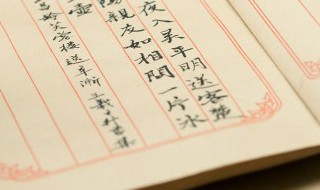 夜入吴平明送客楚
陽親友如相問一片冰
壺
昌齡芙蓉樓送辛漸